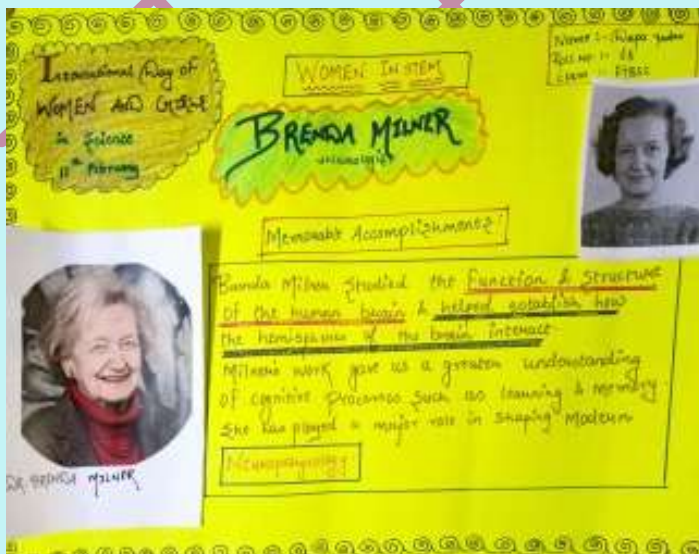 International Day of
WOMEN AND GIRLS
in Science
11th February
WOMEN IN STEM
BRENDA MILNER
Name :-
Roll no :-
Class :-
Memorable Accomplishments
Brenda Milner studied the function & structure
of the human brain & helped establish how
the hemispheres of the brain interact
Milner's work gave us a greater understanding
of cognitive processes such as learning & memory
She has played a major role in shaping Modern
DR BRENDA MILNER